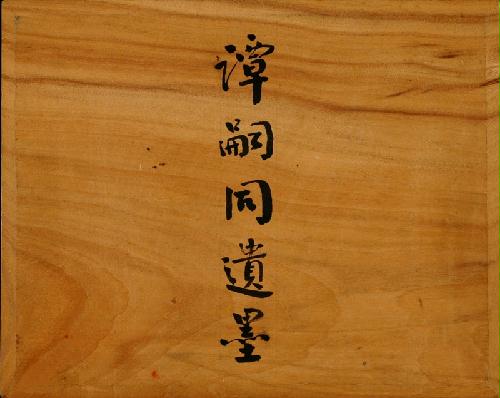 谭嗣同遺墨